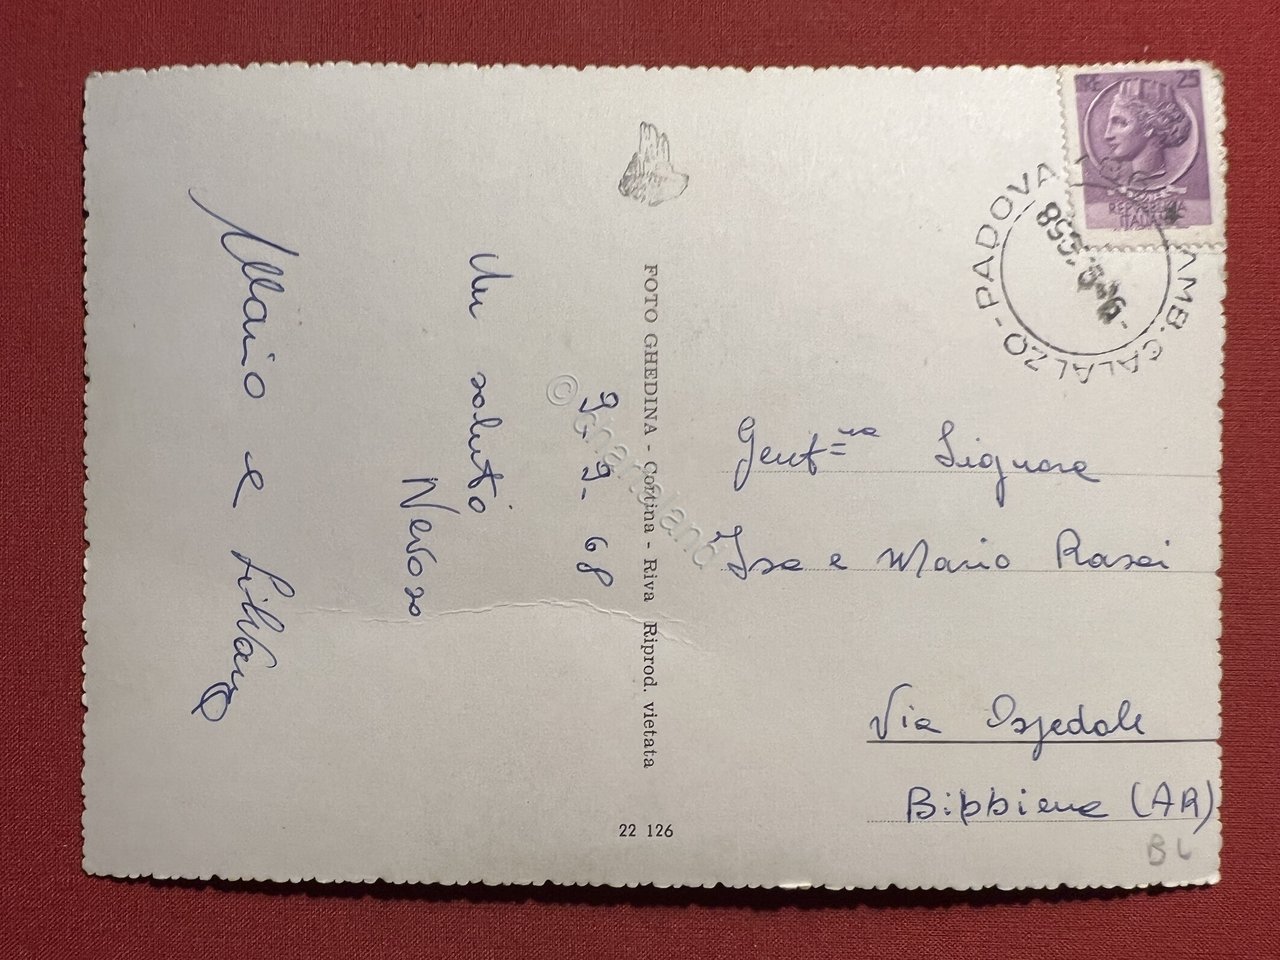 9-9-68
Un saluto
Nevoso
Mario e Liliana
FOTO GHEDINA - Cortina - Riva Riprod. vietata
22 126
LIRE 25
REPUBBLICA
ITALIANA
AMB. CALALZO - PADOVA
Gent=me Signore
Isa e Mario Rasei
Via Ospedale
Bibbiena (AR)
BL
© Chartaland